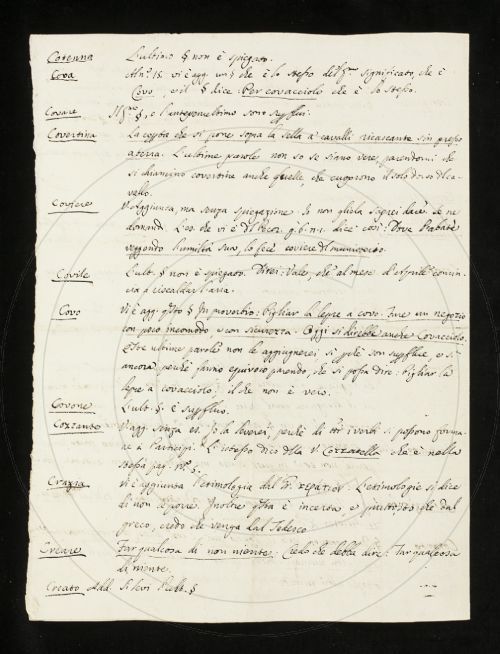 Cotenna L'ultimo § non è spiegato.
Cova Al n.° 18. vi è agg. un § che è lo stesso del p.° significato, che è
Covo, e il § dice: Per covacciolo che è lo stesso.
Covare Il p.mo §, e l'antepenultimo sono superflui.
Covertina La coperta che si pone sopra la sella a' cavalli ricascante sin presso
a terra. L'ultime parole non so se siano vere, parendomi che
si chiamino covertine anche quelle, che cuoprono il solo dosso del ca-
vallo.
Vi è aggiunta, ma senza spiegazione. Io non gliela saprei dare. Se ne
domandi. L'es. che vi è del dice così: Dove
veggendo l'umiltà sua, lo fece
Covile L'ult. § non è spiegato. Direi: Vale, che al mese d'Aprile comin-
cia a riscaldar l'aria.
Covo Vi è agg. q.sto § In proverbio: Pigliar la lepre a covo. Fare un negozio
con poco incomodo e con sicurezza. Oggi si direbbe anche Covacciolo.
Q.ste ultime parole non le aggiugnerei, sì perchè son superflue, e sì
ancora perchè fanno equivoco parendo, che si possa dire: Pigliar la
lepre a covacciolo: il che non è vero.
Covone L'ult. §. è superfluo.
Cozzante V. agg. senza es. Io la leverei, perchè di tutti i verbi si possono forma-
re i Participi. L'istesso dico della V. Cozzatella che è nella
stessa pag.
Crazia Vi è aggiunta l'etimologia dal Gr. L'etimologie si dice
di non le porre. Inoltre q.sta è incerta, e piuttosto che dal
greco, credo che venga dal Tedesco
Creare Far qualcosa di non niente. Credo che debba dire: Far qualcosa
di niente.
Creato Add. Si levi l'ult. §